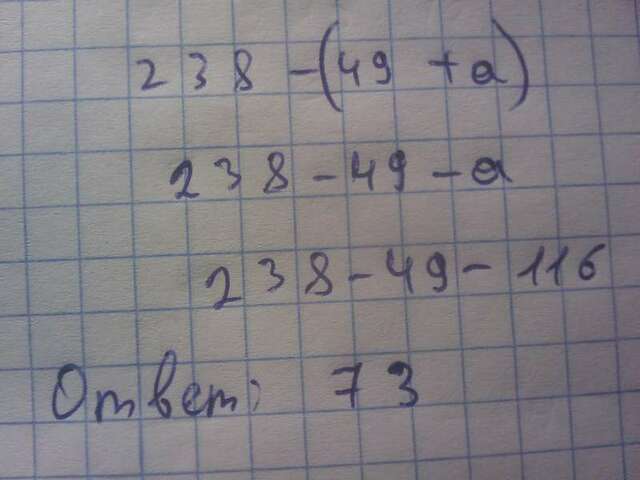 238 - (49 + a)
238 - 49 - a
238 - 49 - 116
Ответ: 73